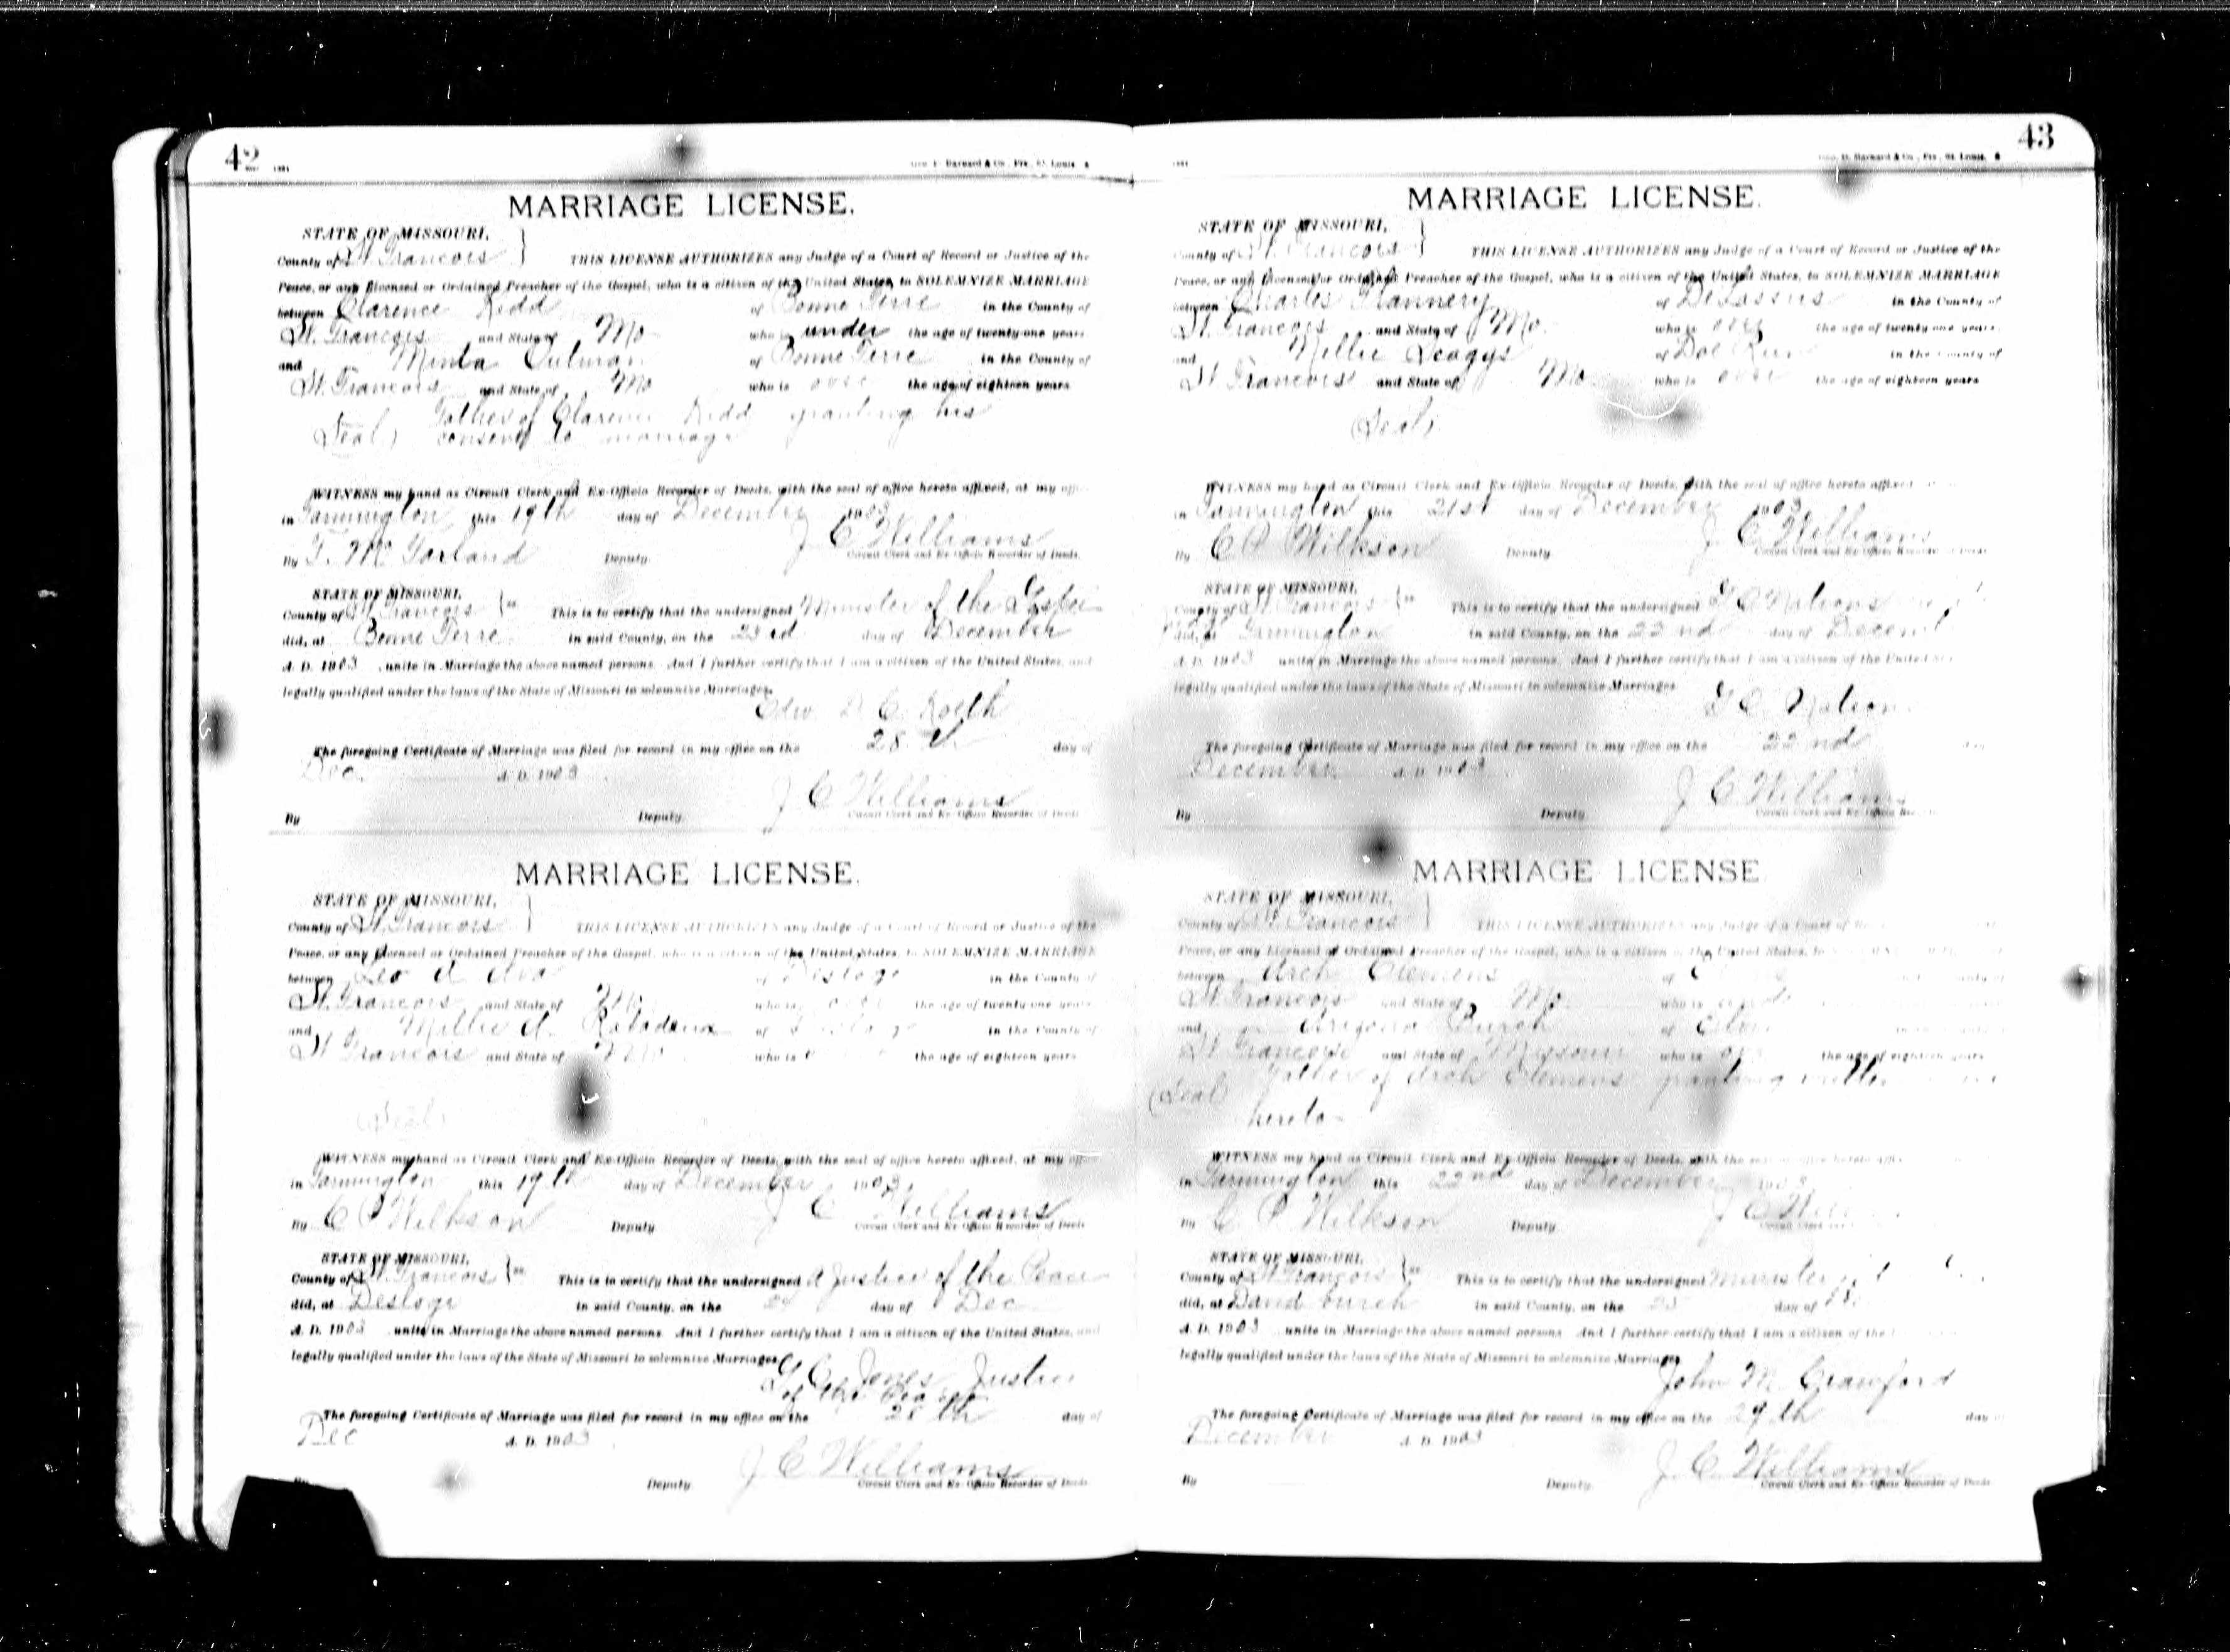 42
MARRIAGE LICENSE.
STATE OF MISSOURI,
County of St. Francois } THIS LICENSE AUTHORIZES any Judge of a Court of Record or Justice of the
Peace, or any Licensed or Ordained Preacher of the Gospel, who is a citizen of the United States, to SOLEMNIZE MARRIAGE
between Clarence Kidd of Bonne Terre in the County of
St. Francois and State of Mo who is under the age of twenty-one years
and Minta of Bonne Terre in the County of
St Francois and State of Mo who is over the age of eighteen years
Father of Clarence Kidd granting his
(Seal) consent to marriage
WITNESS my hand as Circuit Clerk and Ex-Officio Recorder of Deeds, with the seal of office hereto affixed, at my office
in Farmington this 19th day of December 1903
By T. McFarland Deputy J C Williams
Circuit Clerk and Ex-Officio Recorder of Deeds
STATE OF MISSOURI,
County of St Francois } ss This is to certify that the undersigned Minister of the Gospel
did, at Bonne Terre in said County, on the 23rd day of December
A. D. 1903 unite in Marriage the above named persons And I further certify that I am a citizen of the United States, and
legally qualified under the laws of the State of Missouri to solemnize Marriages.
Edw. C.
The foregoing Certificate of Marriage was filed for record in my office on the 28th day of
Dec. A. D. 1903
J C Williams
By Deputy. Circuit Clerk and Ex-Officio Recorder of Deeds
MARRIAGE LICENSE.
STATE OF MISSOURI,
County of St. Francois } THIS LICENSE AUTHORIZES any Judge of a Court of Record or Justice of the
Peace, or any Licensed or Ordained Preacher of the Gospel, who is a citizen of the United States, to SOLEMNIZE MARRIAGE
between Leo A of Desloge in the County of
St. Francois and State of Mo. who is over the age of twenty-one years
and Millie A. of Desloge in the County of
St Francois and State of Mo who is the age of eighteen years
(Seal)
WITNESS my hand as Circuit Clerk and Ex-Officio Recorder of Deeds, with the seal of office hereto affixed, at my office
in Farmington this 19th day of December 1903
By C P Wilkson Deputy J C Williams
Circuit Clerk and Ex-Officio Recorder of Deeds
STATE OF MISSOURI,
County of St. Francois } ss This is to certify that the undersigned A Justice of the Peace
did, at Desloge in said County, on the day of Dec
A. D. 1903 unite in Marriage the above named persons And I further certify that I am a citizen of the United States, and
legally qualified under the laws of the State of Missouri to solemnize Marriages
G C Jones Justice
of the Peace
The foregoing Certificate of Marriage was filed for record in my office on the 28th day of
Dec A. D. 1903
J C Williams
Deputy Circuit Clerk and Ex-Officio Recorder of Deeds
43
MARRIAGE LICENSE.
STATE OF MISSOURI,
County of St. Francois } THIS LICENSE AUTHORIZES any Judge of a Court of Record or Justice of the
Peace, or any Licensed or Ordained Preacher of the Gospel, who is a citizen of the United States, to SOLEMNIZE MARRIAGE
between Charles Flannery of DeLassus in the County of
St. Francois and State of Mo. who is over the age of twenty-one years.
and Millie Scaggs of Doe Run in the County of
St Francois and State of Mo. who is over the age of eighteen years
(Seal)
WITNESS my hand as Circuit Clerk and Ex-Officio Recorder of Deeds, with the seal of office hereto affixed
in Farmington this 21st day of December 1903
By C P Wilkson Deputy J C Williams
Circuit Clerk and Ex-Officio Recorder of Deeds
STATE OF MISSOURI,
County of St Francois } ss This is to certify that the undersigned G C Nations
did, at Farmington in said County, on the 22nd day of Decem
A. D. 1903 unite in Marriage the above named persons And I further certify that I am a citizen of the United
legally qualified under the laws of the State of Missouri to solemnize Marriages
G C Nation
The foregoing Certificate of Marriage was filed for record in my office on the 22nd
December A. D. 1903
J C Williams
By Deputy. Circuit Clerk and Ex-Officio
MARRIAGE LICENSE
STATE OF MISSOURI,
County of St. Francois } THIS LICENSE AUTHORIZES any Judge of a Court of
Peace, or any Licensed or Ordained Preacher of the Gospel, who is a citizen of the United States, to
between Arch Clemens of
St. Francois and State of Mo. who is
and Burch of
St Francois and State of Missouri who is the age of eighteen years
Father of Arch Clemens granting
(Seal)
hereto
WITNESS my hand as Circuit Clerk and Ex-Officio Recorder of Deeds, with the
in Farmington this 22nd day of December
By C P Wilkson Deputy. J C
STATE OF MISSOURI,
County of St Francois } ss This is to certify that the undersigned Minister
did, at David Burch in said County, on the 25 day of
A. D. 1903 unite in Marriage the above named persons And I further certify that I am a citizen of the
legally qualified under the laws of the State of Missouri to solemnize Marriages
John M. Crawford
The foregoing Certificate of Marriage was filed for record in my office on the 29th day
December A. D. 1903
J. C. Williams
By Deputy. Circuit Clerk and Ex-Officio Recorder of Deeds